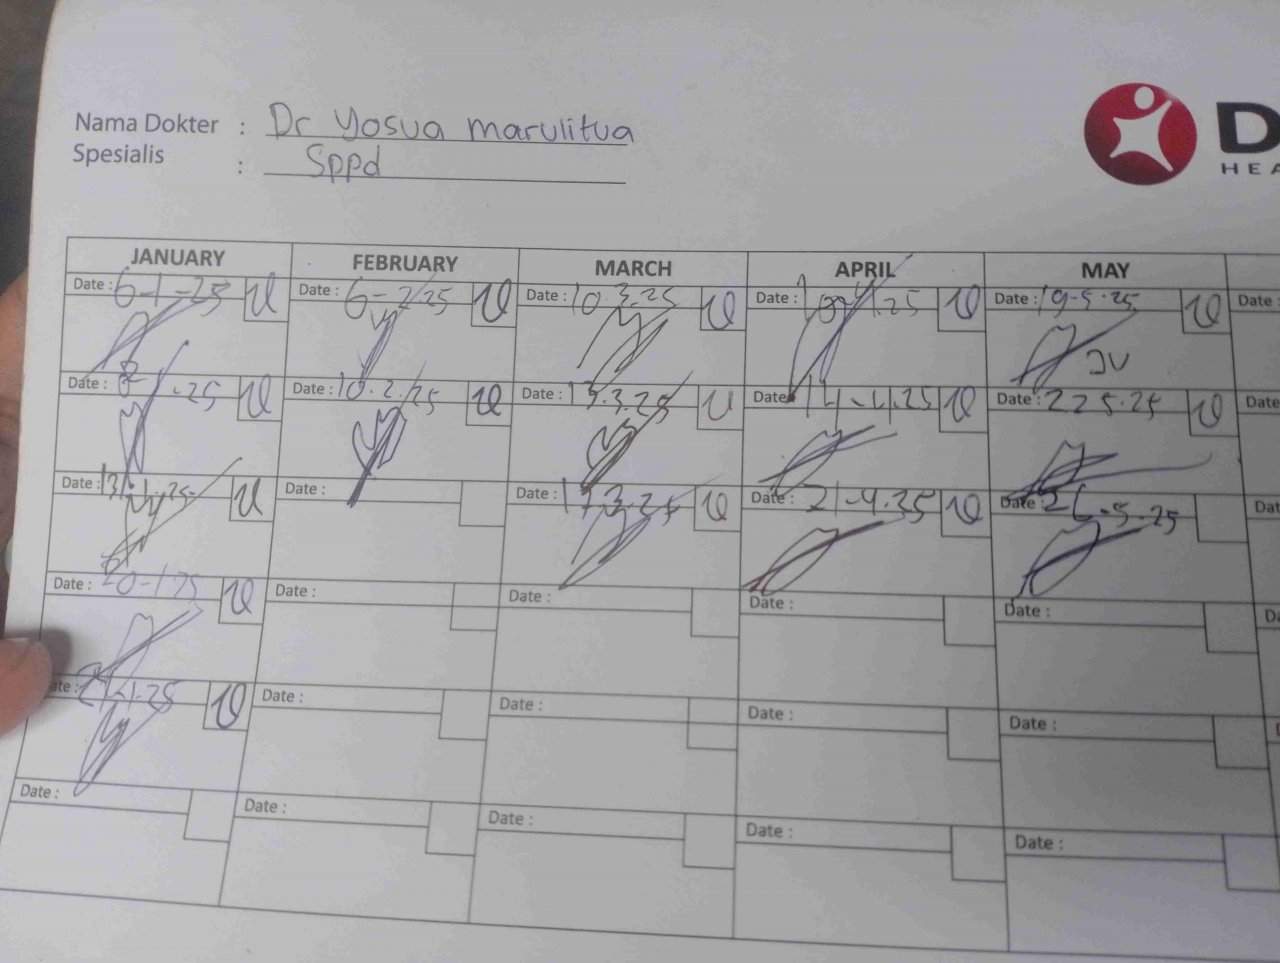 Nama Dokter : Dr Yosua marulitua
Spesialis : Sppd
D
HEA
JANUARY FEBRUARY MARCH APRIL MAY
Date : 6-1-25 Date : 6-2-25 Date : 10.3.25 Date : Date : 19-5-25 Date
JV
Date : Date : 10.2.25 Date : Date : 14-4.25 Date : 22 5.25 Date
Date : Date : Date : 17.3.25 Date : 21-4.25 Date : 26-5-25 Dat
Date : 20-1-25 Date : Date : Date : Date :
Date : Date : Date : Date :
Date : Date : Date : Date : Date :